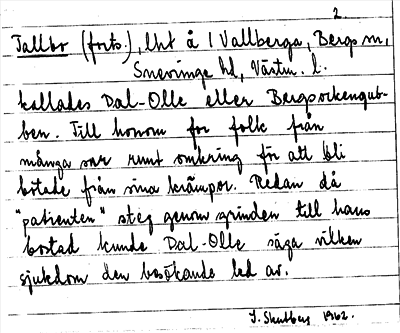 2.
Tallbo (forts.), lht å 1 Vallberga, Bergs sn,
Snevringe hd, Västm. l.
kallades Dal-Olle eller Bergsockengub-
ben. Till honom for folk från
många mil runt omkring för att bli
botade från sina krämpor. Redan då
"patienten" steg genom grinden till hans
bostad kunde Dal-Olle säga vilken
sjukdom den besökande led av.
1962.